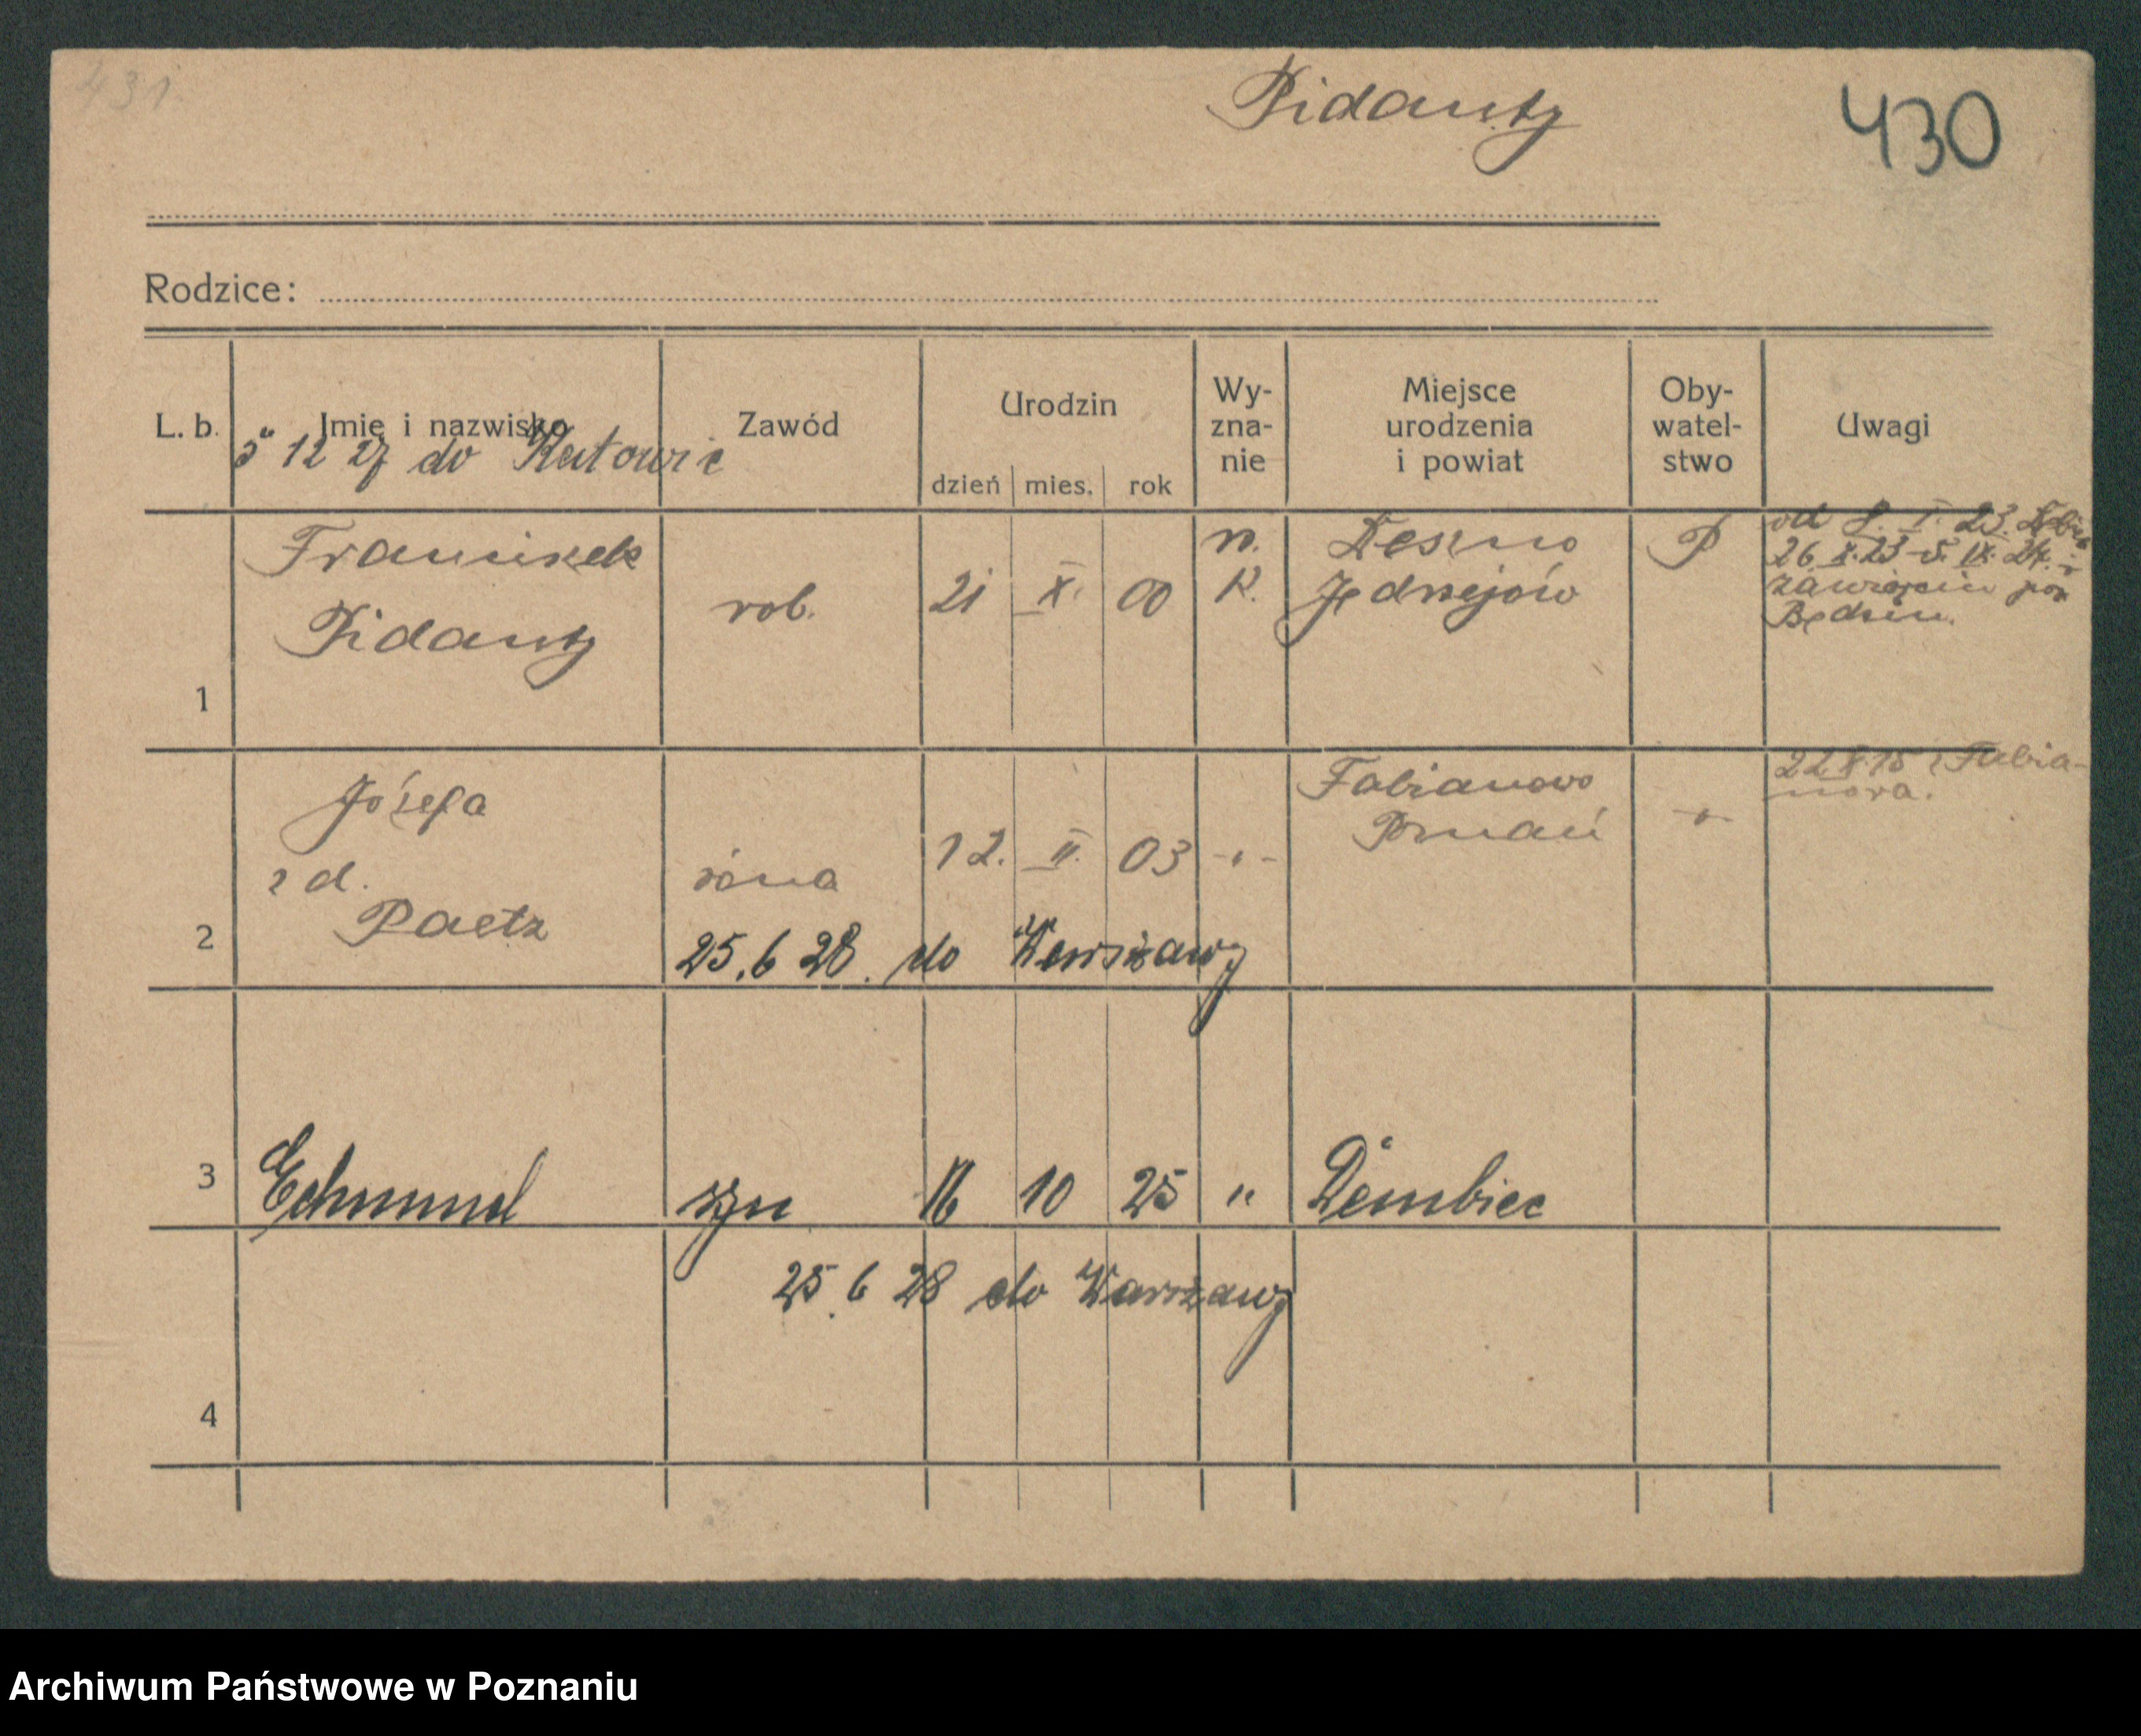 431
Pidanty
430
Rodzice:
L. b.
Imię i nazwisko
Zawód
Urodzin
dzień mies. rok
Wy-
zna-
nie
Miejsce
urodzenia
i powiat
Oby-
watel-
stwo
Uwagi
5 12 27 do Katowic
1
Franciszek
Pidanty
rob.
21 X. 00
r.
K.
Jędrzejów
P
od 8. I. 23.
26 X. 23 - 5. IX. 24. z
Zawiercia pow
Będzin.
2
Józefa
z d.
Paetz
żona
12. II. 03 - " -
Fabianowo
Poznań
- " -
z Fabia-
nowa.
25. 6 28. do Warszawy
3
Edmund
syn
16 10 25 "
Dembiec
25. 6 28 do Warszawy
4
Archiwum Państwowe w Poznaniu